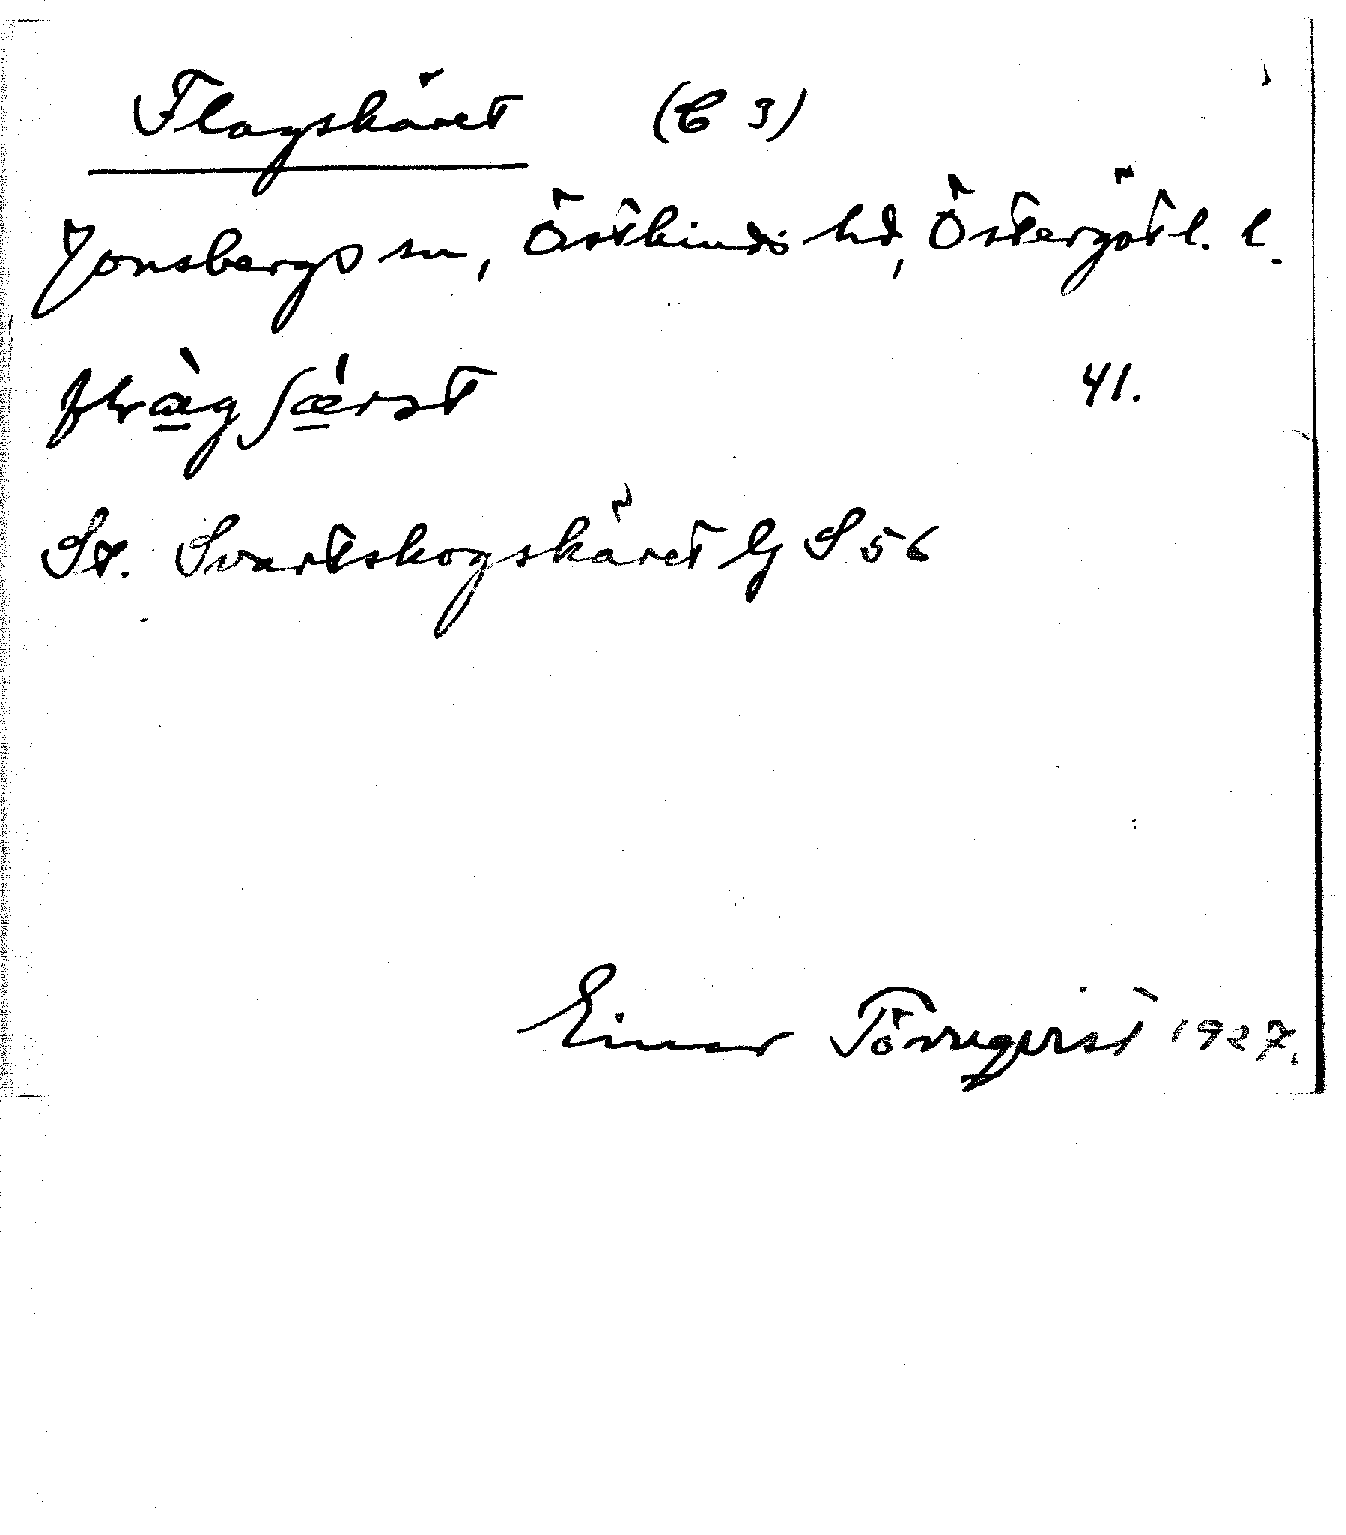 Flagskäret (C 3)
Jonsbergs sn, Östkinds hd, Östergötl. l.
41.
St. Svartskogskäret lg S 56
Einar Törnqvist 1927.